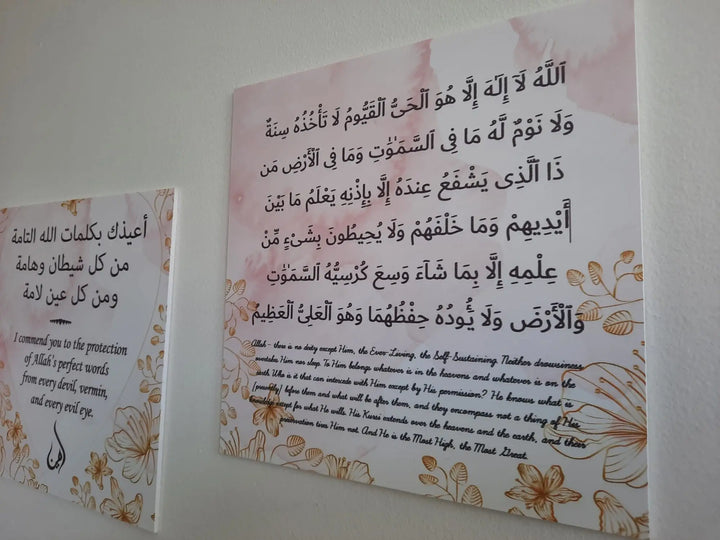 أعيذك بكلمات الله التامة
من كل شيطان وهامة
ومن كل عين لامة
I commend you to the protection
of Allah's perfect words
from every devil, vermin,
and every evil eye.
آمين
ٱللَّهُ لَآ إِلَٰهَ إِلَّا هُوَ ٱلْحَىُّ ٱلْقَيُّومُ لَا تَأْخُذُهُۥ سِنَةٌ
وَلَا نَوْمٌ لَّهُۥ مَا فِى ٱلسَّمَٰوَٰتِ وَمَا فِى ٱلْأَرْضِ مَن
ذَا ٱلَّذِى يَشْفَعُ عِندَهُۥٓ إِلَّا بِإِذْنِهِۦ يَعْلَمُ مَا بَيْنَ
أَيْدِيهِمْ وَمَا خَلْفَهُمْ وَلَا يُحِيطُونَ بِشَىْءٍ مِّنْ
عِلْمِهِۦٓ إِلَّا بِمَا شَآءَ وَسِعَ كُرْسِيُّهُ ٱلسَّمَٰوَٰتِ
وَٱلْأَرْضَ وَلَا يَـُٔودُهُۥ حِفْظُهُمَا وَهُوَ ٱلْعَلِىُّ ٱلْعَظِيمُ
Allah - there is no deity except Him, the Ever-Living, the Self-Sustaining. Neither drowsiness
overtakes Him nor sleep. To Him belongs whatever is in the heavens and whatever is on the
earth. Who is it that can intercede with Him except by His permission? He knows what is
[presently] before them and what will be after them, and they encompass not a thing of His
knowledge except for what He wills. His Kursi extends over the heavens and the earth, and their
preservation tires Him not. And He is the Most High, the Most Great.